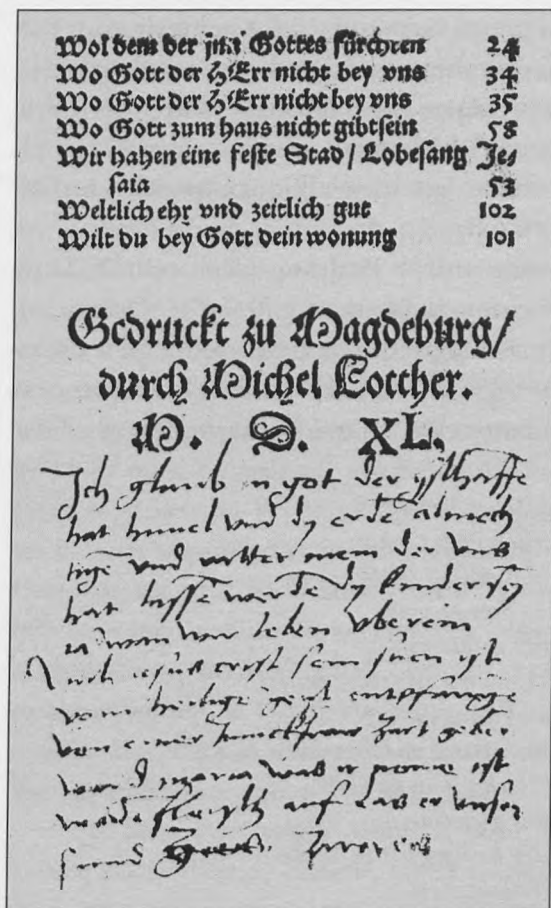 Wol dem der jnn Gottes fürchten 24
Wo Gott der HErr nicht bey vns 34
Wo Gott der HErr nicht bey vns 35
Wo Gott zum haus nicht gibt sein 58
Wir haben eine feste Stad / Lobesang Je⸗
saia 53
Weltlich ehr vnd zeitlich gut 102
Wilt du bey Gott dein wonung 101
Gedruckt zu Magdeburg /
durch Michel Lotther.
M. D. XL.
Ich glaub in got der
hat himel vnd dy erde almech
tige vnd vatter der vns
hat lasse werde dy kinder sey
wan wir leben vberein
crist sein suen ist
von heilige geist entpfange
von junckfraw zart
maria was er ist
auf das er vnser